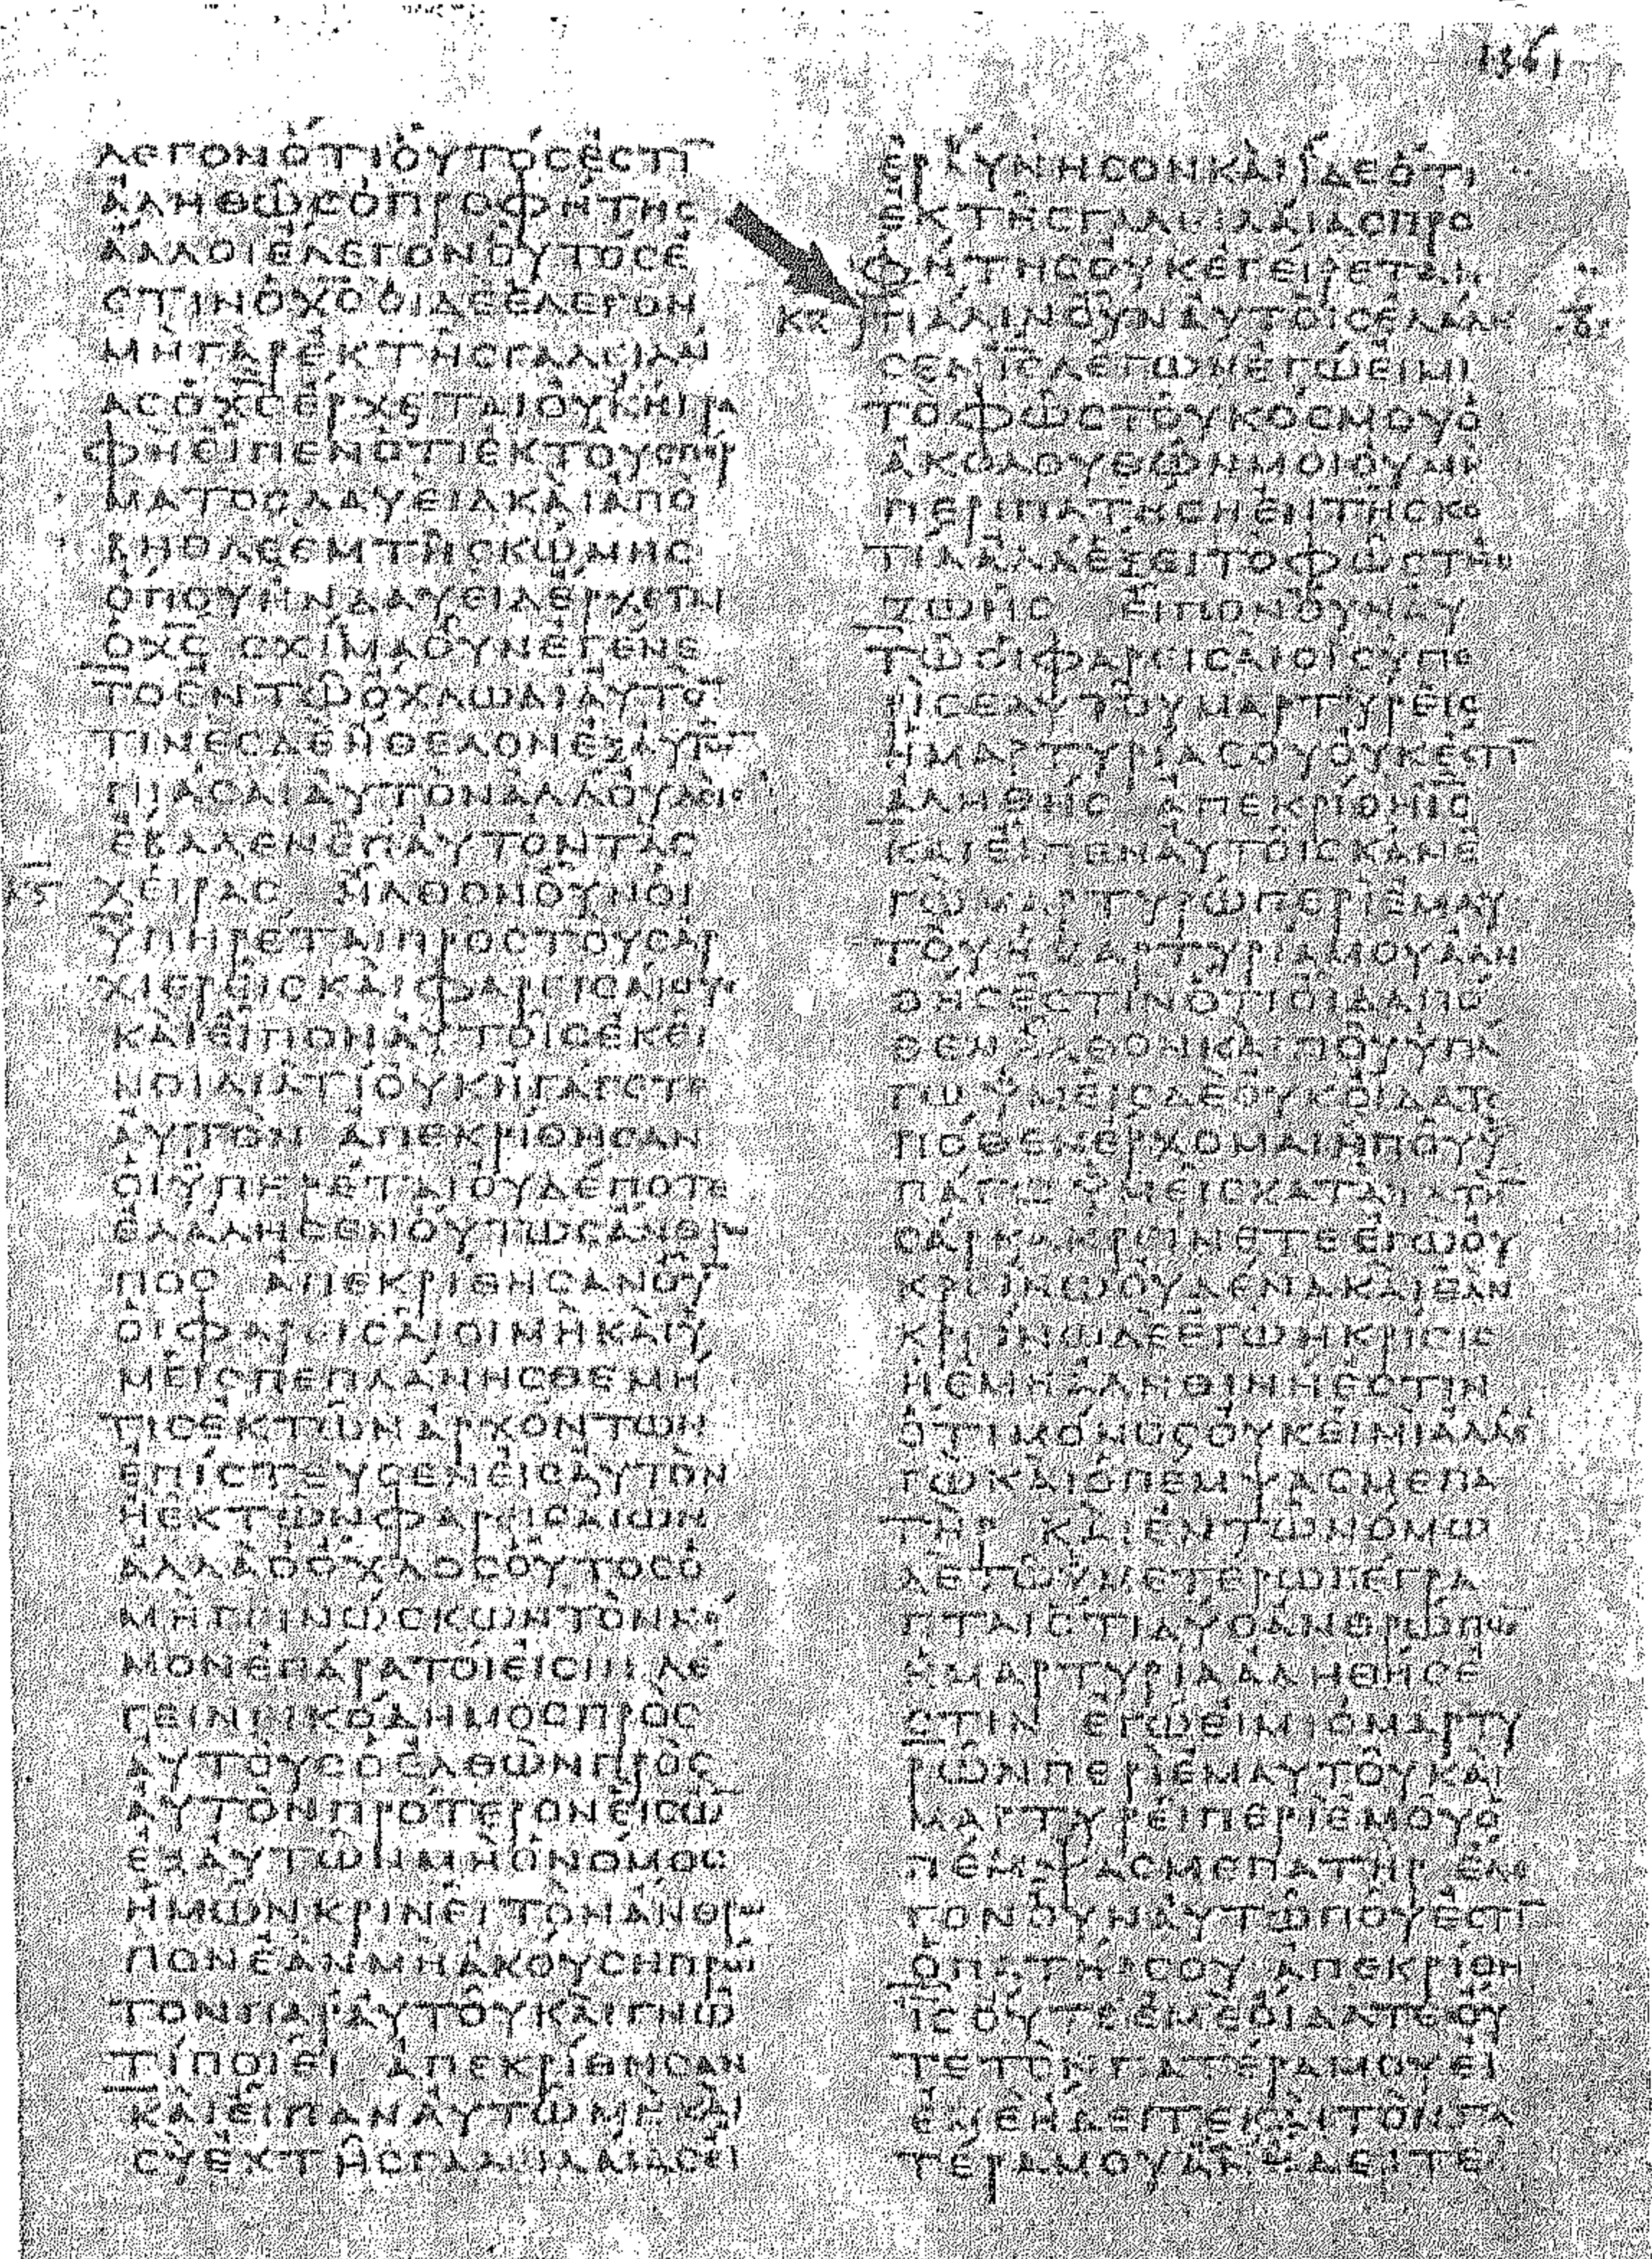 1361
ΛΕΓΟΝΟΤΙΟΥΤΟϹΕϹΤΙ̅
ΑΛΗΘΩϹΟΠΡΟΦΗΤΗϹ
ΑΛΛΟΙΕΛΕΓΟΝΟΥΤΟϹΕ
ϹΤΙΝΟΧ̅Ϲ̅ΟΙΔΕΕΛΕΓΟΝ
ΜΗΓΑΡΕΚΤΗϹΓΑΛΕΙΛΑΙ
ΑϹΟΧ̅Ϲ̅ΕΡΧΕΤΑΙΟΥΚΗΓΡΑ
ΦΗΕΙΠΕΝΟΤΙΕΚΤΟΥϹΠΕΡ
ΜΑΤΟϹΔΑΥΕΙΔΚΑΙΑΠΟ
ΒΗΘΛΕΕΜΤΗϹΚΩΜΗϹ
ΟΠΟΥΗΝΔΑΥΕΙΔΕΡΧΕΤΑΙ
ΟΧ̅Ϲ̅ ϹΧΙϹΜΑΟΥΝΕΓΕΝΕ
ΤΟΕΝΤΩΟΧΛΩΔΙΑΥΤΟ̅
ΤΙΝΕϹΔΕΗΘΕΛΟΝΕΞΑΥΤΩ̅
ΠΙΑϹΑΙΑΥΤΟΝΑΛΛΟΥΔΕΙϹ
ΕΒΑΛΕΝΕΠΑΥΤΟΝΤΑϹ
ΧΕΙΡΑϹ ΗΛΘΟΝΟΥΝΟΙ
ΥΠΗΡΕΤΑΙΠΡΟϹΤΟΥϹΑΡ
ΧΙΕΡΕΙϹΚΑΙΦΑΡΕΙϹΑΙΟΥϹ
ΚΑΙΕΙΠΟΝΑΥΤΟΙϹΕΚΕΙ
ΝΟΙΔΙΑΤΙΟΥΚΗΓΑΓΕΤΕ
ΑΥΤΟΝ ΑΠΕΚΡΙΘΗϹΑΝ
ΟΙΥΠΗΡΕΤΑΙΟΥΔΕΠΟΤΕ
ΕΛΑΛΗϹΕΝΟΥΤΩϹΑΝΘΡΩ
ΠΟϹ ΑΠΕΚΡΙΘΗϹΑΝΟΥ̅
ΟΙΦΑΡΕΙϹΑΙΟΙΜΗΚΑΙΥ
ΜΕΙϹΠΕΠΛΑΝΗϹΘΕΜΗ
ΤΙϹΕΚΤΩΝΑΡΧΟΝΤΩΝ
ΕΠΙϹΤΕΥϹΕΝΕΙϹΑΥΤΟΝ
ΗΕΚΤΩΝΦΑΡΕΙϹΑΙΩΝ
ΑΛΛΑΟΟΧΛΟϹΟΥΤΟϹΟ
ΜΗΓΕΙΝΩϹΚΩΝΤΟΝΝΟ
ΜΟΝΕΠΑΡΑΤΟΙΕΙϹΙΝ ΛΕ
ΓΕΙΝΕΙΚΟΔΗΜΟϹΠΡΟϹ
ΑΥΤΟΥϹΟΕΛΘΩΝΠΡΟϹ
ΑΥΤΟΝΠΡΟΤΕΡΟΝΕΙϹΩ̅
ΕΞΑΥΤΩΝΜΗΟΝΟΜΟϹ
ΗΜΩΝΚΡΙΝΕΙΤΟΝΑΝΘΡΩ
ΠΟΝΕΑΝΜΗΑΚΟΥϹΗΠΡΩ
ΤΟΝΠΑΡΑΥΤΟΥΚΑΙΓΝΩ
ΤΙΠΟΙΕΙ ΑΠΕΚΡΙΘΗϹΑΝ
ΚΑΙΕΙΠΑΝΑΥΤΩΜΗΚΑΙ
ϹΥΕΚΤΗϹΓΑΛΕΙΛΑΙΑϹΕΙ
ΕΡΑΥΝΗϹΟΝΚΑΙΙΔΕΟΤΙ
ΕΚΤΗϹΓΑΛΕΙΛΑΙΑϹΠΡΟ
ΦΗΤΗϹΟΥΚΕΓΕΙΡΕΤΑΙ
ΠΑΛΙΝΟΥΝΑΥΤΟΙϹΕΛΑΛΗ
ϹΕΝΙ̅Ϲ̅ΛΕΓΩΝΕΓΩΕΙΜΙ
ΤΟΦΩϹΤΟΥΚΟϹΜΟΥΟ
ΑΚΟΛΟΥΘΩΝΜΟΙΟΥΜΗ
ΠΕΡΙΠΑΤΗϹΗΕΝΤΗϹΚΟ
ΤΙΑΑΛΛΕΞΕΙΤΟΦΩϹΤΗϹ
ΖΩΗϹ ΕΙΠΟΝΟΥΝΑΥ
ΤΩΟΙΦΑΡΕΙϹΑΙΟΙϹΥΠΕ
ΡΙϹΕΑΥΤΟΥΜΑΡΤΥΡΕΙϹ
ΗΜΑΡΤΥΡΙΑϹΟΥΟΥΚΕϹΤΙ̅
ΑΛΗΘΗϹ ΑΠΕΚΡΙΘΗΙ̅Ϲ̅
ΚΑΙΕΙΠΕΝΑΥΤΟΙϹΚΑΝΕ
ΓΩΜΑΡΤΥΡΩΠΕΡΙΕΜΑΥ
ΤΟΥΗΜΑΡΤΥΡΙΑΜΟΥΑΛΗ
ΘΗϹΕϹΤΙΝΟΤΙΟΙΔΑΠΟ
ΘΕΝΗΛΘΟΝΚΑΙΠΟΥΥΠΑ
ΓΩΥΜΕΙϹΔΕΟΥΚΟΙΔΑΤΕ
ΠΟΘΕΝΕΡΧΟΜΑΙΗΠΟΥΥ
ΠΑΓΩ ΥΜΕΙϹΚΑΤΑΤΗ̅
ϹΑΡΚΑΚΡΕΙΝΕΤΕΕΓΩΟΥ
ΚΡΕΙΝΩΟΥΔΕΝΑΚΑΙΕΑΝ
ΚΡΕΙΝΩΔΕΕΓΩΗΚΡΙϹΙϹ
ΗΕΜΗΑΛΗΘΙΝΗΕϹΤΙΝ
ΟΤΙΜΟΝΟϹΟΥΚΕΙΜΙΑΛΛΕ
ΓΩΚΑΙΟΠΕΜΨΑϹΜΕΠΑ
ΤΗΡ ΚΑΙΕΝΤΩΝΟΜΩ
ΔΕΤΩΥΜΕΤΕΡΩΓΕΓΡΑ
ΠΤΑΙΟΤΙΔΥΟΑΝΘΡΩΠΩ̅
ΗΜΑΡΤΥΡΙΑΑΛΗΘΗϹΕ
ϹΤΙΝ ΕΓΩΕΙΜΙΟΜΑΡΤΥ
ΡΩΝΠΕΡΙΕΜΑΥΤΟΥΚΑΙ
ΜΑΡΤΥΡΕΙΠΕΡΙΕΜΟΥΟ
ΠΕΜΨΑϹΜΕΠΑΤΗΡ ΕΛΕ
ΓΟΝΟΥΝΑΥΤΩΠΟΥΕϹΤΙ̅
ΟΠΑΤΗΡϹΟΥ ΑΠΕΚΡΙΘΗ
Ι̅Ϲ̅ΟΥΤΕΕΜΕΟΙΔΑΤΕΟΥ
ΤΕΤΟΝΠΑΤΕΡΑΜΟΥΕΙ
ΕΜΕΗΔΕΙΤΕΚΑΙΤΟΝΠΑ
ΤΕΡΑΜΟΥΑΝΗΔΕΙΤΕ